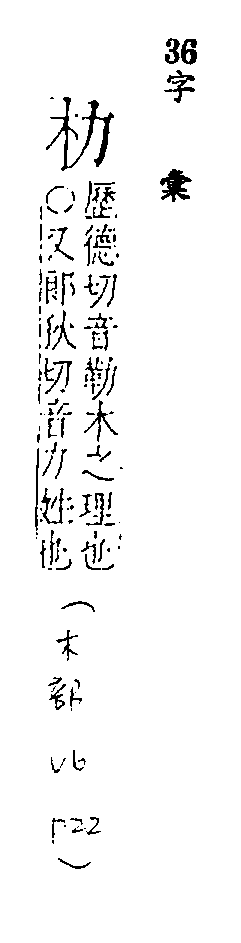 36字彙
朸
歷德切音勒木之理也
○又郎狄切音力姓也
(木部 v6 p22)